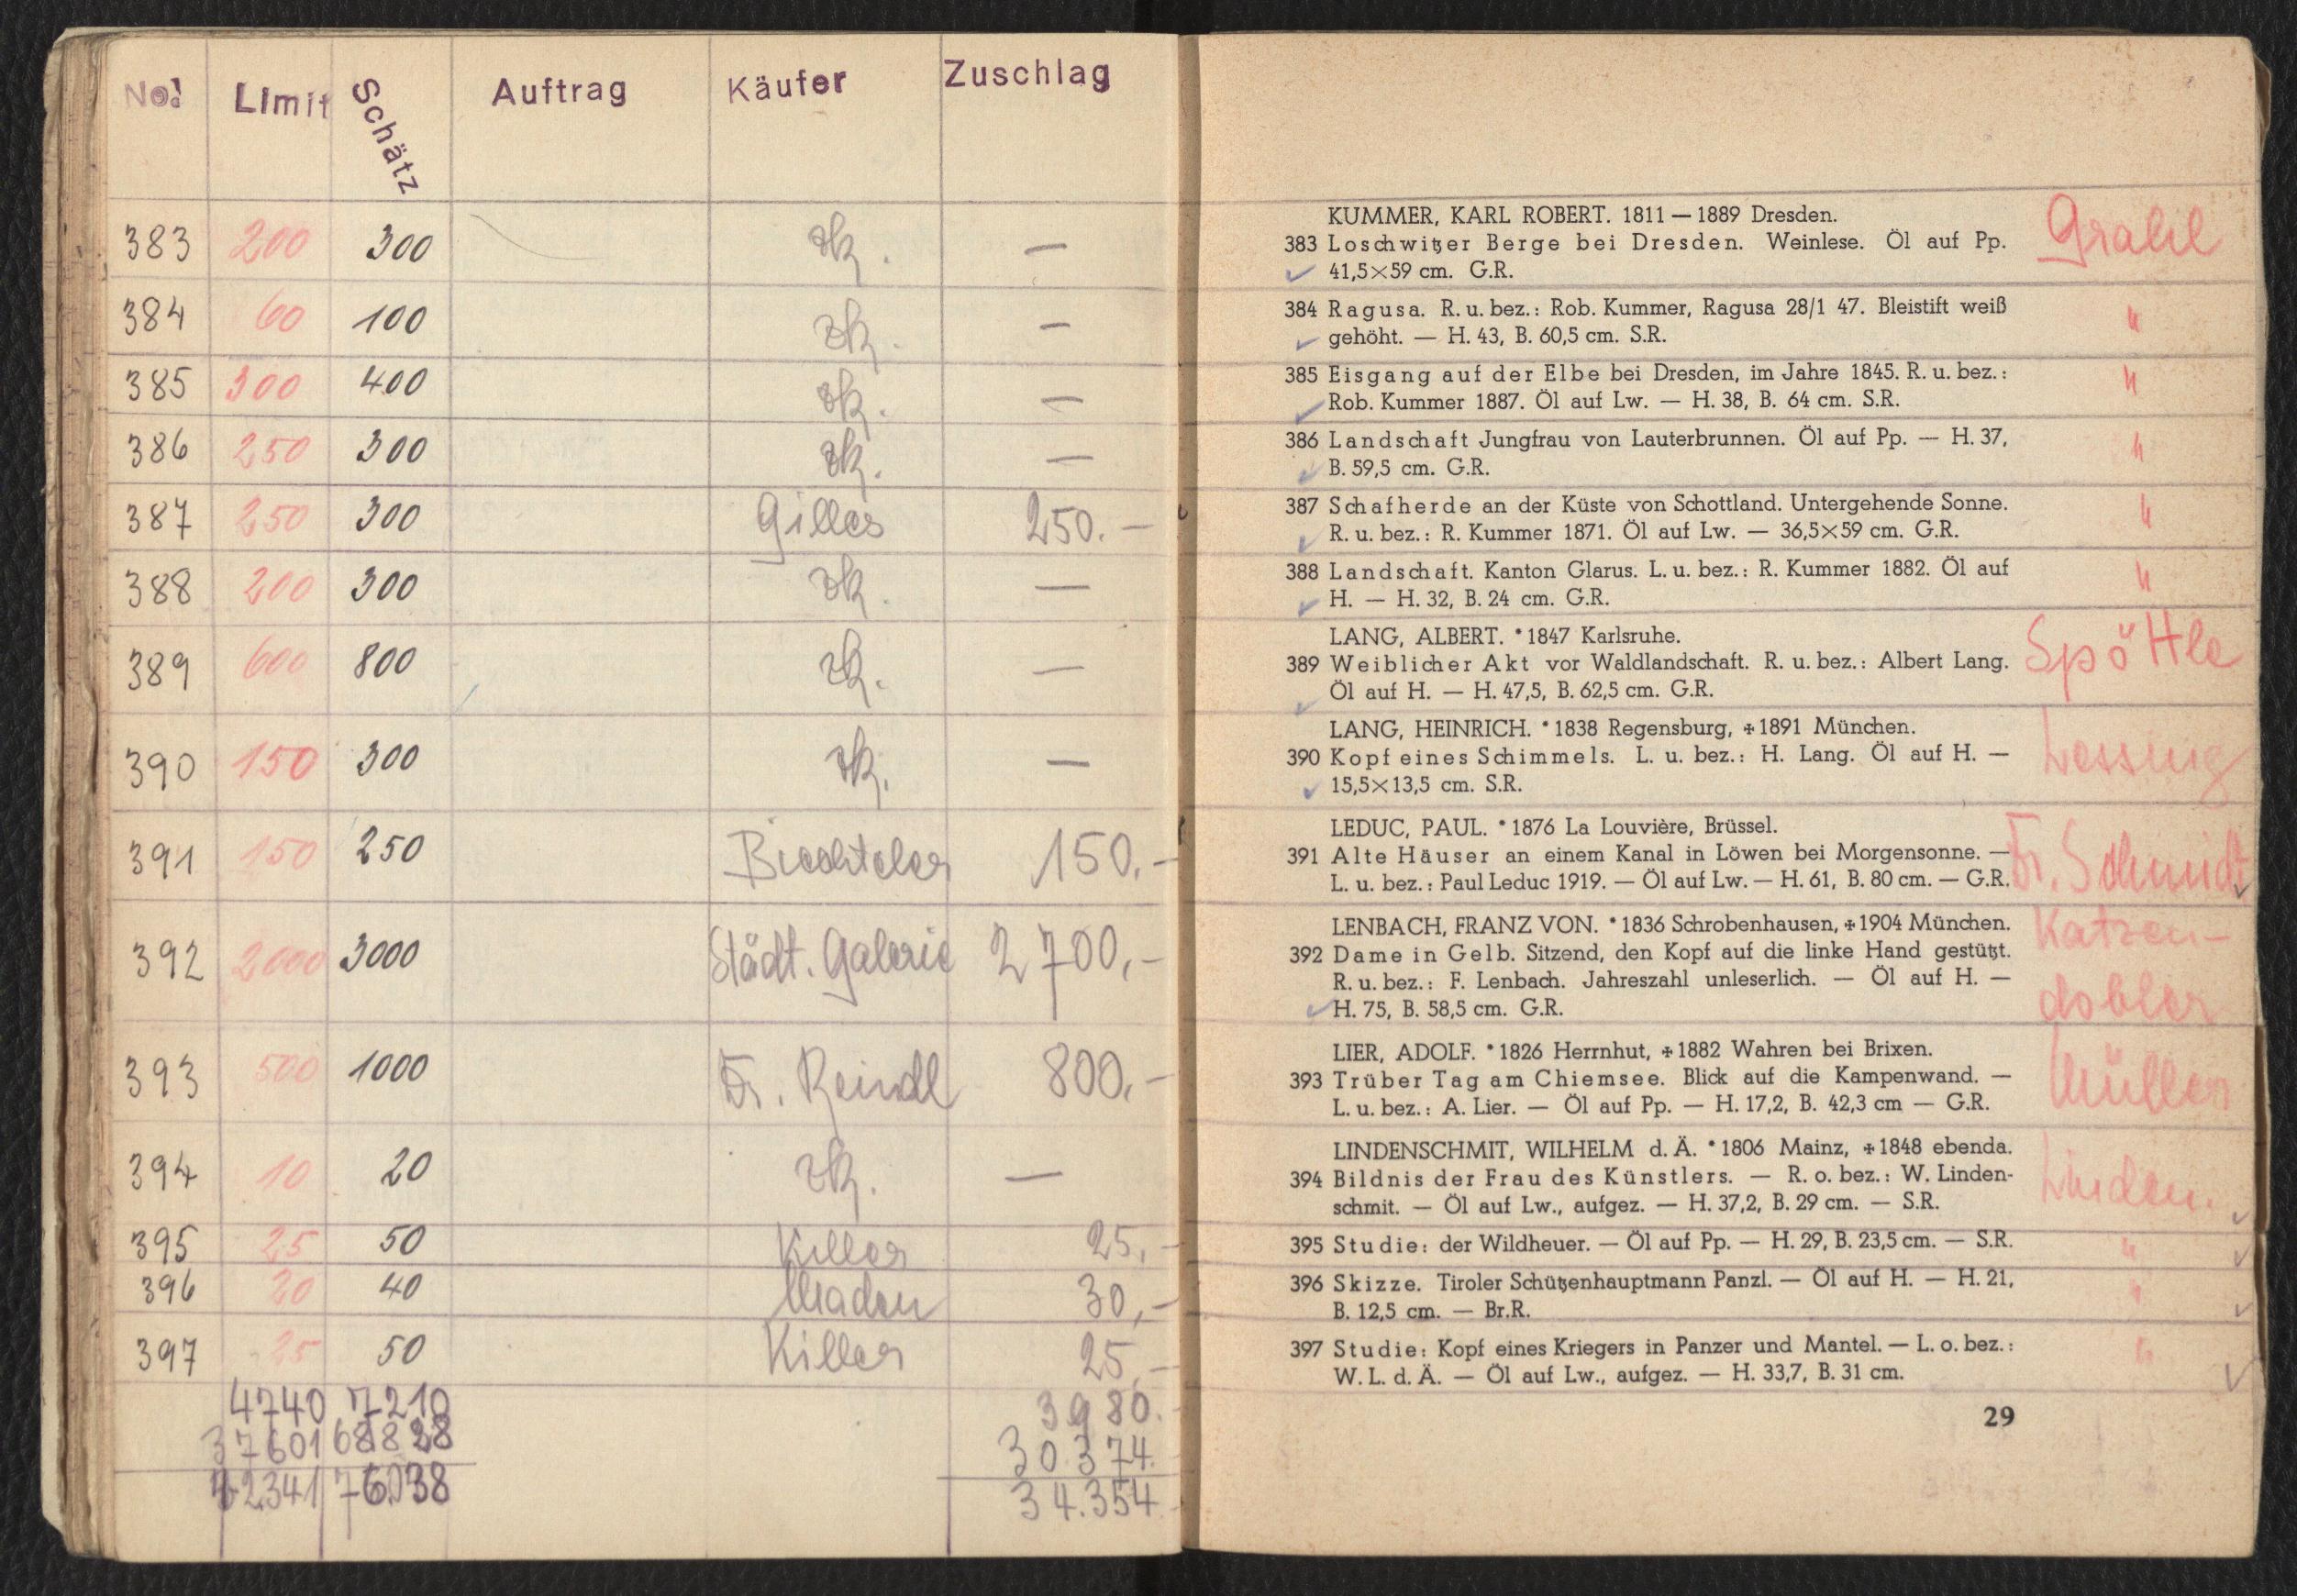 No. Limit Schätz Auftrag Käufer Zuschlag
383 200 300 zk. —
384 60 100 zk. —
385 300 400 zk. —
386 250 300 zk. —
387 250 300 Gilles 250.—
388 200 300 zk. —
389 600 800 zk. —
390 150 300 zk. —
391 150 250 150.—
392 2000 3000 Städt. Galerie 2700,—
393 500 1000 Dr. Reindl 800,—
394 10 20 zk. —
395 25 50 Killer 25,—
396 20 40 Maden 30,—
397 25 50 Killer 25,—
4740 7210 3980.
37601 68828 30.374.
42341 76038 34.354
KUMMER, KARL ROBERT. 1811 — 1889 Dresden.
383 Loschwitzer Berge bei Dresden. Weinlese. Öl auf Pp. Grahl
41,5×59 cm. G.R.
384 Ragusa. R. u. bez.: Rob. Kummer, Ragusa 28/1 47. Bleistift weiß "
gehöht. — H. 43, B. 60,5 cm. S.R.
385 Eisgang auf der Elbe bei Dresden, im Jahre 1845. R. u. bez.: "
Rob. Kummer 1887. Öl auf Lw. — H. 38, B. 64 cm. S.R.
386 Landschaft Jungfrau von Lauterbrunnen. Öl auf Pp. — H. 37, "
B. 59,5 cm. G.R.
387 Schafherde an der Küste von Schottland. Untergehende Sonne. "
R. u. bez.: R. Kummer 1871. Öl auf Lw. — 36,5×59 cm. G.R.
388 Landschaft. Kanton Glarus. L. u. bez.: R. Kummer 1882. Öl auf "
H. — H. 32, B. 24 cm. G.R.
LANG, ALBERT. *1847 Karlsruhe.
389 Weiblicher Akt vor Waldlandschaft. R. u. bez.: Albert Lang. Spöttle
Öl auf H. — H. 47,5, B. 62,5 cm. G.R.
LANG, HEINRICH. *1838 Regensburg, ✠1891 München.
390 Kopf eines Schimmels. L. u. bez.: H. Lang. Öl auf H. — Lessing
15,5×13,5 cm. S.R.
LEDUC, PAUL. *1876 La Louvière, Brüssel.
391 Alte Häuser an einem Kanal in Löwen bei Morgensonne. — Dr. Schmidt
L. u. bez.: Paul Leduc 1919. — Öl auf Lw. — H. 61, B. 80 cm. — G.R.
LENBACH, FRANZ VON. *1836 Schrobenhausen, ✠1904 München. Katzen-
392 Dame in Gelb. Sitzend, den Kopf auf die linke Hand gestützt.
R. u. bez.: F. Lenbach. Jahreszahl unleserlich. — Öl auf H. — dobler
H. 75, B. 58,5 cm. G.R.
LIER, ADOLF. *1826 Herrnhut, ✠1882 Wahren bei Brixen.
393 Trüber Tag am Chiemsee. Blick auf die Kampenwand. — Müller
L. u. bez.: A. Lier. — Öl auf Pp. — H. 17,2, B. 42,3 cm — G.R.
LINDENSCHMIT, WILHELM d. Ä. *1806 Mainz, ✠1848 ebenda.
394 Bildnis der Frau des Künstlers. — R. o. bez.: W. Linden- Linden.
schmit. — Öl auf Lw., aufgez. — H. 37,2, B. 29 cm. — S.R.
395 Studie: der Wildheuer. — Öl auf Pp. — H. 29, B. 23,5 cm. — S.R. "
396 Skizze. Tiroler Schützenhauptmann Panzl. — Öl auf H. — H. 21, "
B. 12,5 cm. — Br.R.
397 Studie: Kopf eines Kriegers in Panzer und Mantel. — L. o. bez.: "
W. L. d. Ä. — Öl auf Lw., aufgez. — H. 33,7, B. 31 cm.
29